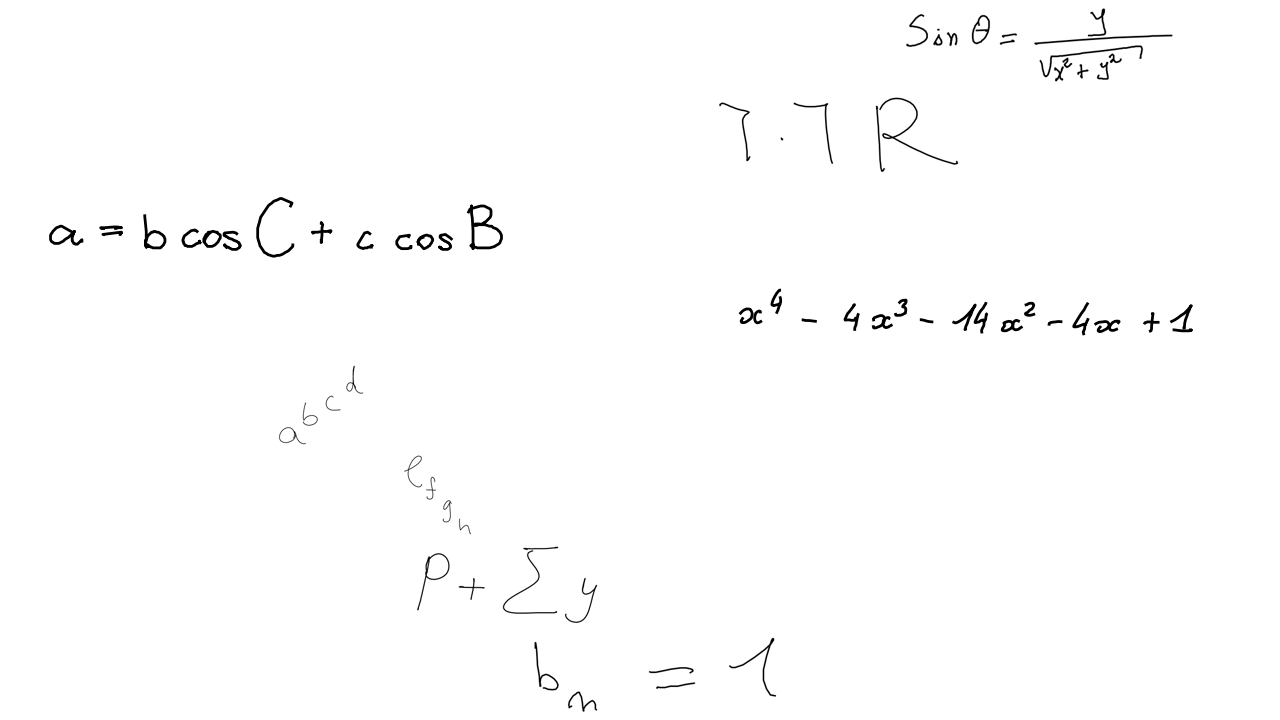 sin θ = y / √(x² + y²)
7.7 R
a = b cos C + c cos B
x⁴ - 4x³ - 14x² - 4x + 1
a^{b^{c^{d}}}
e_{f_{g_{h}}}
p + ∑ y
b_n = 1